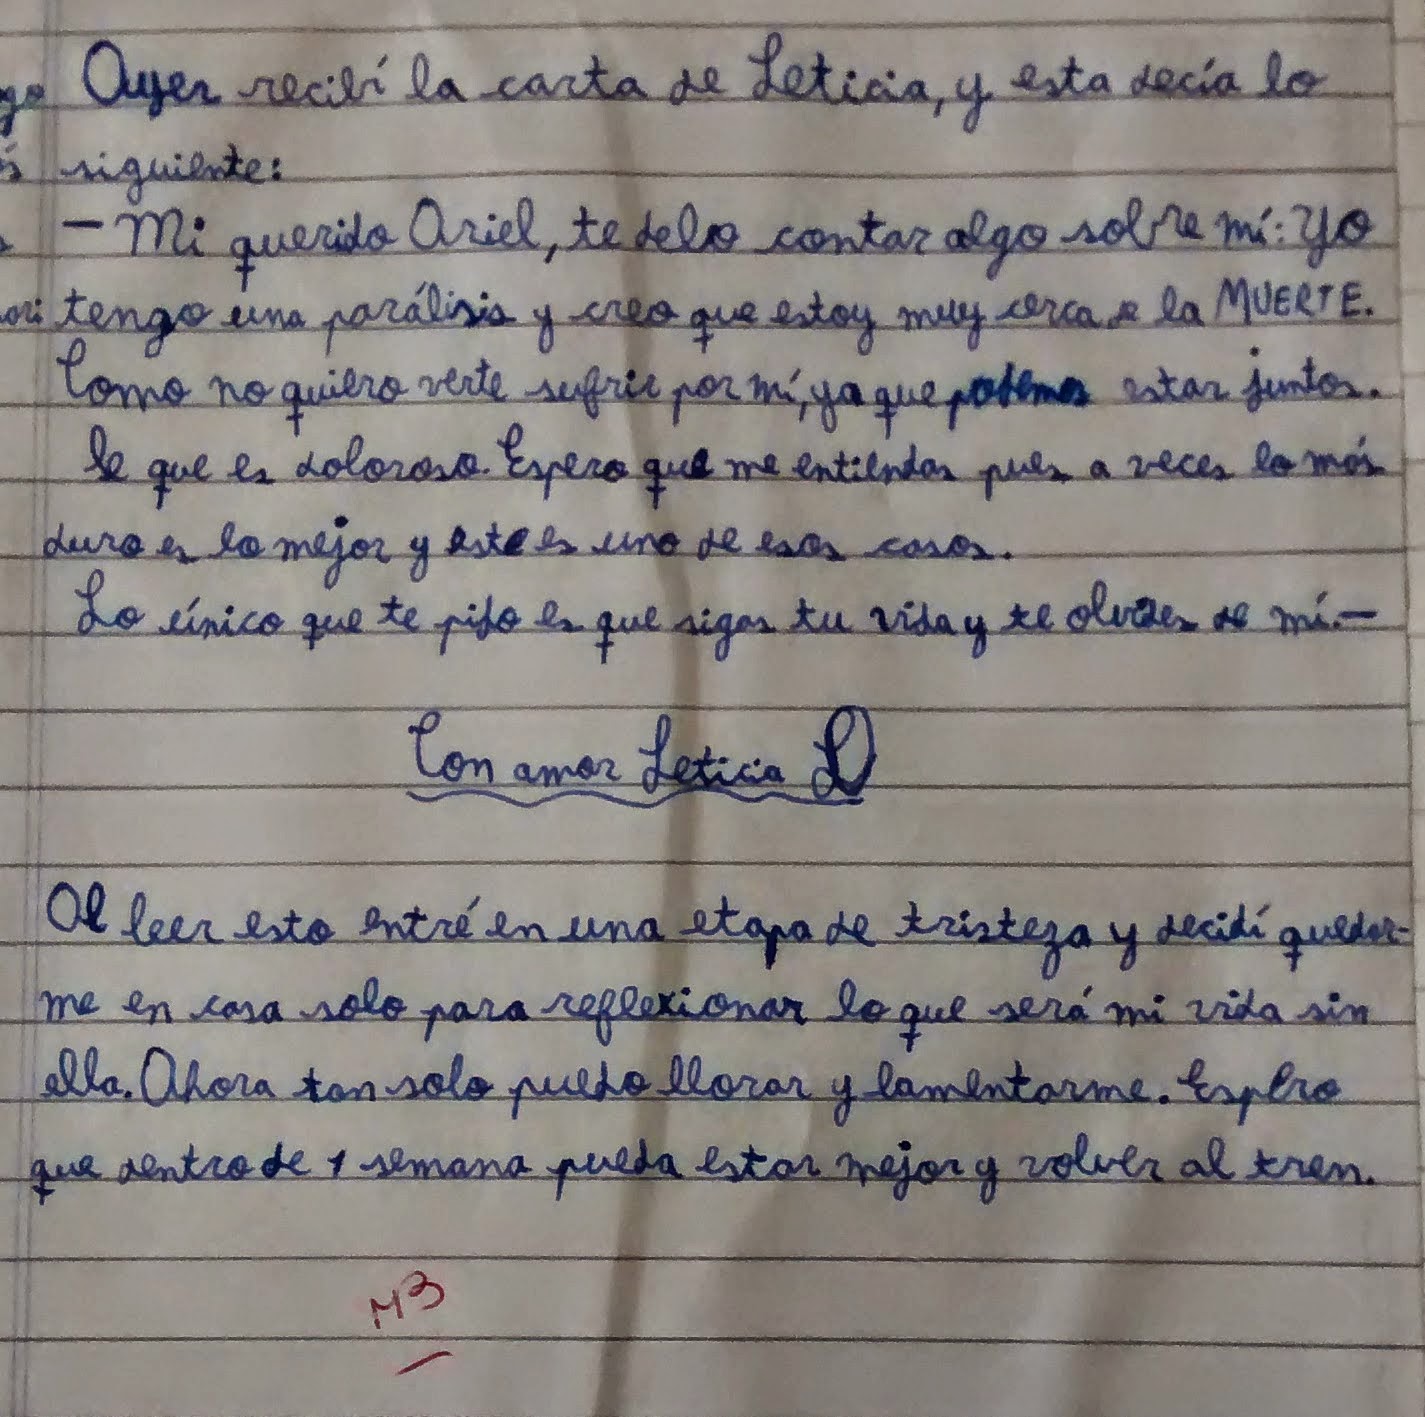 Ayer recibí la carta de Leticia, y esta decía lo
siguiente:
— Mi querido Ariel, te debo contar algo sobre mí: Yo
tengo una parálisis y creo que estoy muy cerca de la MUERTE.
Como no quiero verte sufrir por mí, ya que podemos estar juntos.
Se que es doloroso. Espero que me entiendas pues a veces lo más
duro es lo mejor y este es uno de esos casos.
Lo único que te pido es que sigas tu vida y te olvides de mí.—
Con amor Leticia L
Al leer esto entré en una etapa de tristeza y decidí quedar-
me en casa solo para reflexionar lo que será mi vida sin
ella. Ahora tan solo puedo llorar y lamentarme. Espero
que dentro de 1 semana pueda estar mejor y volver al tren.